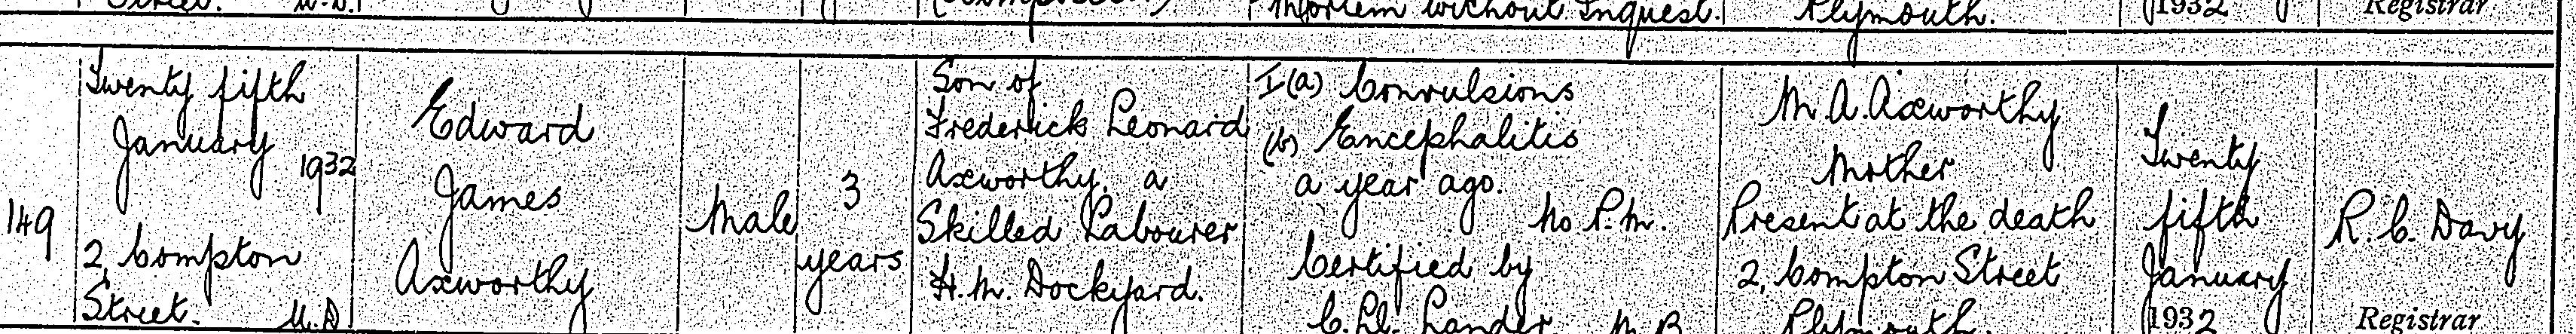 Street. U.D.
mortem without Inquest.
Plymouth.
1932
Registrar
149
Twenty fifth
January
1932
2, Compton
Street. U.D.
Edward
James
Axworthy
Male
3
years
Son of
Frederick Leonard
Axworthy, a
Skilled Labourer
H.M. Dockyard.
I(a) Convulsions
(b) Encephalitis
a year ago.
No P.M.
Certified by
C. Ll. Lander M.B.
M.A. Axworthy
Mother
Present at the death
2, Compton Street
Plymouth.
Twenty
fifth
January
1932
R.C. Davy
Registrar